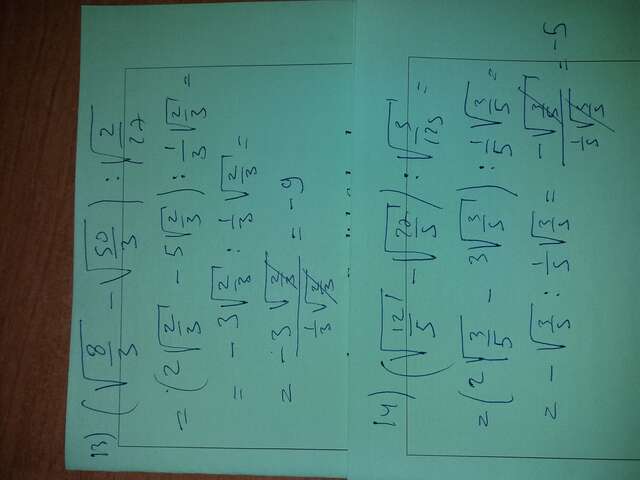 13) (√(8/3) − √(50/3)) : √(2/27)
= (2√(2/3) − 5√(2/3)) : 1/3 √(2/3) =
= −3√(2/3) : 1/3 √(2/3) =
= (−3√(2/3)) / (1/3 √(2/3)) = −9
14) (√(12/5) − √(27/5)) : √(3/125) =
= (2√(3/5) − 3√(3/5)) : 1/5 √(3/5) =
= −√(3/5) : 1/5 √(3/5) = (−√(3/5)) / (1/5 √(3/5)) = −5